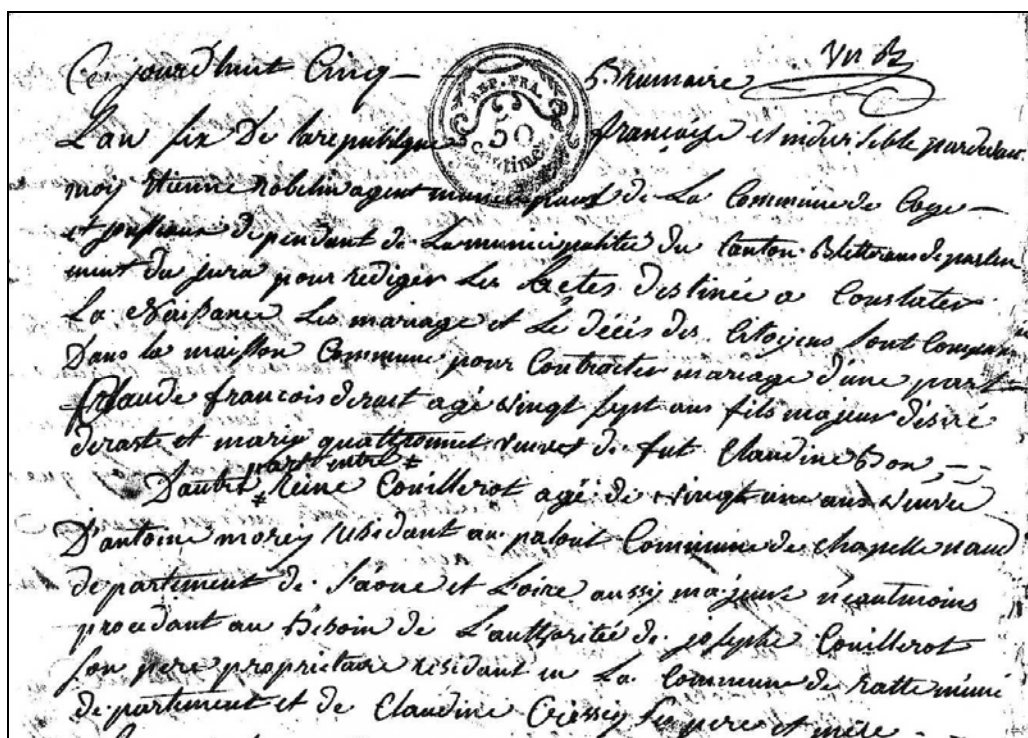 Ce jourd'huit Cinq — Brumaire
REP. FRA.
50
Centimes
L'an six De la republique françoise et indivisible pardevant
moy Etienne Robelin agent municipal de La Commune de Coge —
et dependant de La municipalitée du Canton Bletterans departe
ment du jura pour rediger Les Actes destinée a Constater
La Naissance Les mariage et Le décés des Citoyens sont Comparu
Dans la maison Commune pour Contracter mariage d'une part —
Claude francois derast agé vingt sept ans fils majeur désiré
deraste et marie veuve de fut Claudine Bon —
part entre
D'autre Reine Couillerot agé de vingt une ans veuve
D'antoine morey residant au palout Commune de Chapelle naud
departement de Saone et Loire aussy majeure néantmoins
procedant au Besoin de L'authoritée de josephe Couillerot
son pere propriétaire residant en La Commune de ratte mime
departement et de Claudine Cressey ses pere et mere